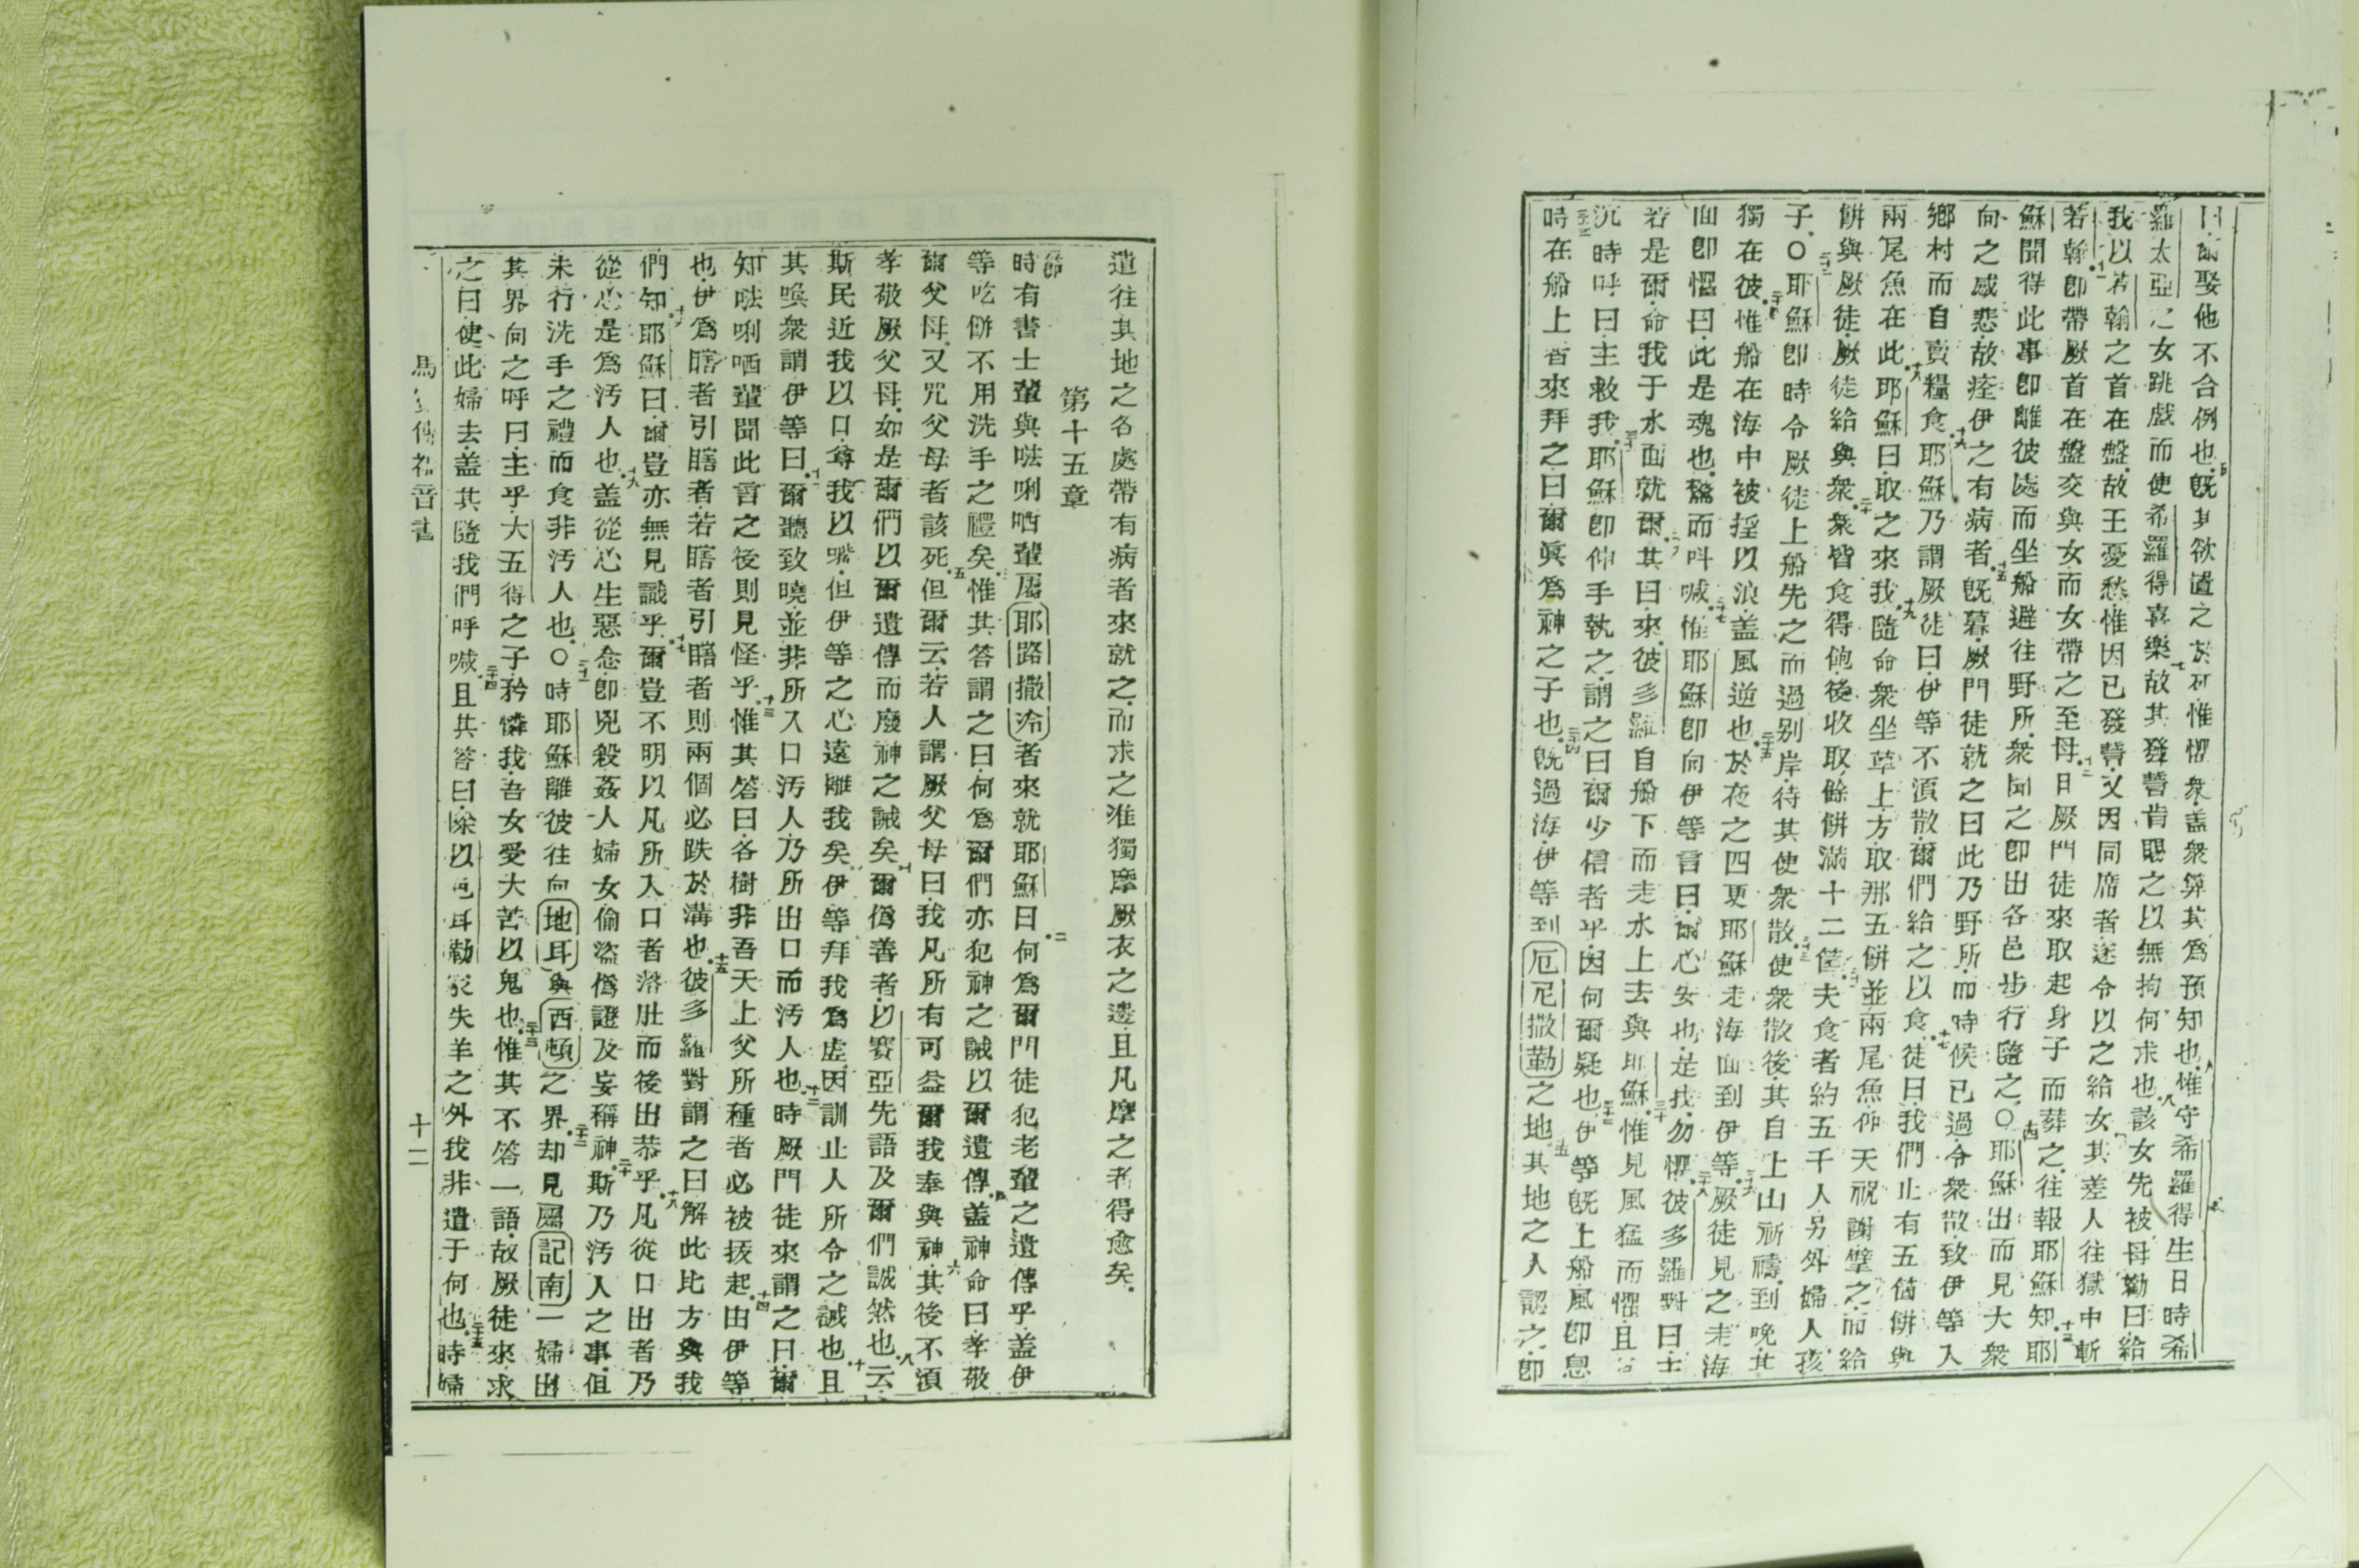 曰爾娶他不合例也既其欲遣之於死惟懼衆盖衆算其爲預知也惟守希羅得生日時希
羅太亞之女跳戲而使希羅得喜樂故其發誓肯賜之以無拘何求也該女先被母勸曰給
我以若翰之首在盤故王憂愁惟因已發誓又因同席者遂令以之給女其差人往獄中斬
若翰卽帶厥首在盤交與女而女帶之至母厥門徒來取起身子而葬之往報耶穌知耶
穌聞得此事卽離彼處而坐船避往野所衆聞之卽出各邑步行隨之〇耶穌出而見大衆
向之感悲故痊伊之有病者旣暮厥門徒就之曰此乃野所而時候已過令衆散致伊等入
鄉村而自賣糧食耶穌乃謂厥徒曰伊等不須散爾們給之以食徒曰我們止有五個餅與
兩尾魚在此耶穌曰取之來我隨命衆坐草上方取那五餅並兩尾魚仰天祝謝擘之而給
餅與厥徒厥徒給與衆衆皆食得飽後收取餘餅滿十二筐夫食者約五千人另外婦人孩
子〇耶穌卽時令厥徒上船先之而過别岸待其使衆散使衆散後其自上山祈禱到晚其
獨在彼惟船在海中被搖以浪盖風逆也於夜之四更耶穌走海面到伊等厥徒見之走海
面卽懼曰此是魂也驚而呌喊惟耶穌卽向伊等言曰爾心安也是我勿懼彼多羅對曰主
若是爾命我于水面就爾其曰來彼多羅自船下而走水上去與耶穌惟見風猛而懼且
沉時呼曰主救我耶穌卽伸手執之謂之曰爾少信者乎因何爾疑也伊等旣上船風卽息
時在船上者來拜之曰爾眞爲神之子也旣過海伊等到厄尼撒勒之地其地之人認之卽
遣往其地之各處帶有病者來就之而求之准獨摩厥衣之邊且凡摩之者得愈矣
第十五章
時有書士輩與㖿唎哂輩屬耶路撒冷者來就耶穌曰何爲爾門徒犯老輩之遺傳乎盖伊
等吃餅不用洗手之禮矣惟其答謂之曰何爲爾們亦犯神之誡以爾遺傳盖神命曰孝敬
爾父母又咒父母者該死但爾云若人謂厥父母曰我凡所有可益爾我奉與神其後不須
孝敬厥父母如是爾們以爾遺傳而廢神之誡矣爾僞善者以賽亞先語及爾們誠然也云
斯民近我以口尊我以嘴但伊等之心遠離我矣伊等拜我爲虛因訓止人所令之誡也且
其喚衆謂伊等曰爾聽致曉並非所入口汚人乃所出口而汚人也時厥門徒來謂之曰爾
知㖿唎哂輩聞此言之後則見怪乎惟其答曰各樹非吾天上父所種者必被拔起由伊等
也伊爲瞎者引瞎者若瞎者引瞎者則兩個必跌於溝也彼多羅對謂之曰解此比方與我
們知耶穌曰爾豈亦無見識乎爾豈不明以凡所入口者落肚而後出恭乎凡從口出者乃
從心是爲汚人也盖從心生惡念卽兇殺姦人婦女偷盜僞證及妄稱神斯乃汚人之事但
未行洗手之禮而食非汚人也〇時耶穌離彼往向地耳與西頓之界却見屬記南一婦出
其界向之呼曰主乎大五得之子矜憐我吾女受大苦以鬼也惟其不答一語故厥徒來求
之曰使此婦去盖其隨我們呼喊且其答曰除以色耳勒家失羊之外我非遣于何也時婦
馬 傳福音書 十二